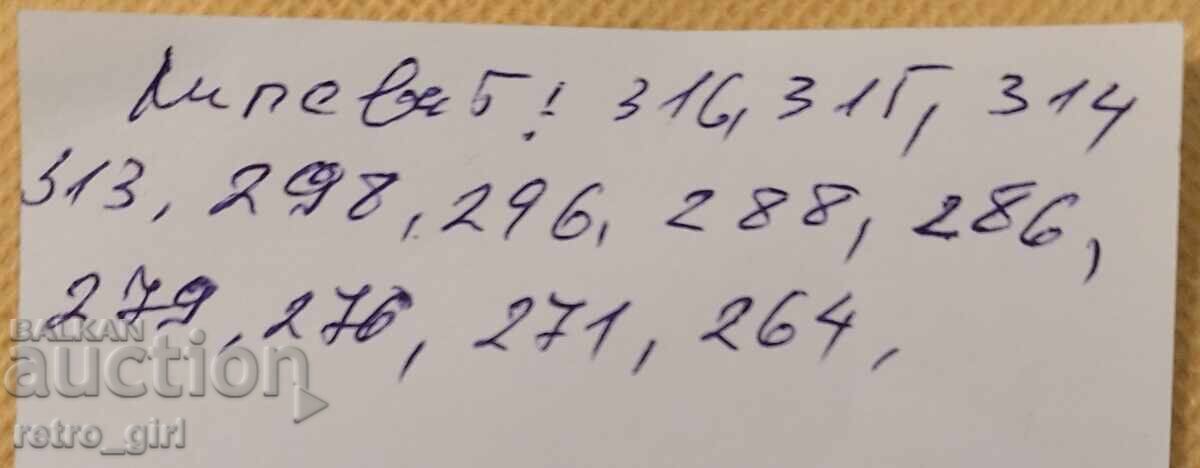 Липсват! 316, 315, 314
313, 298, 296, 288, 286,
279, 276, 271, 264,
BALKAN
auction
retro_girl